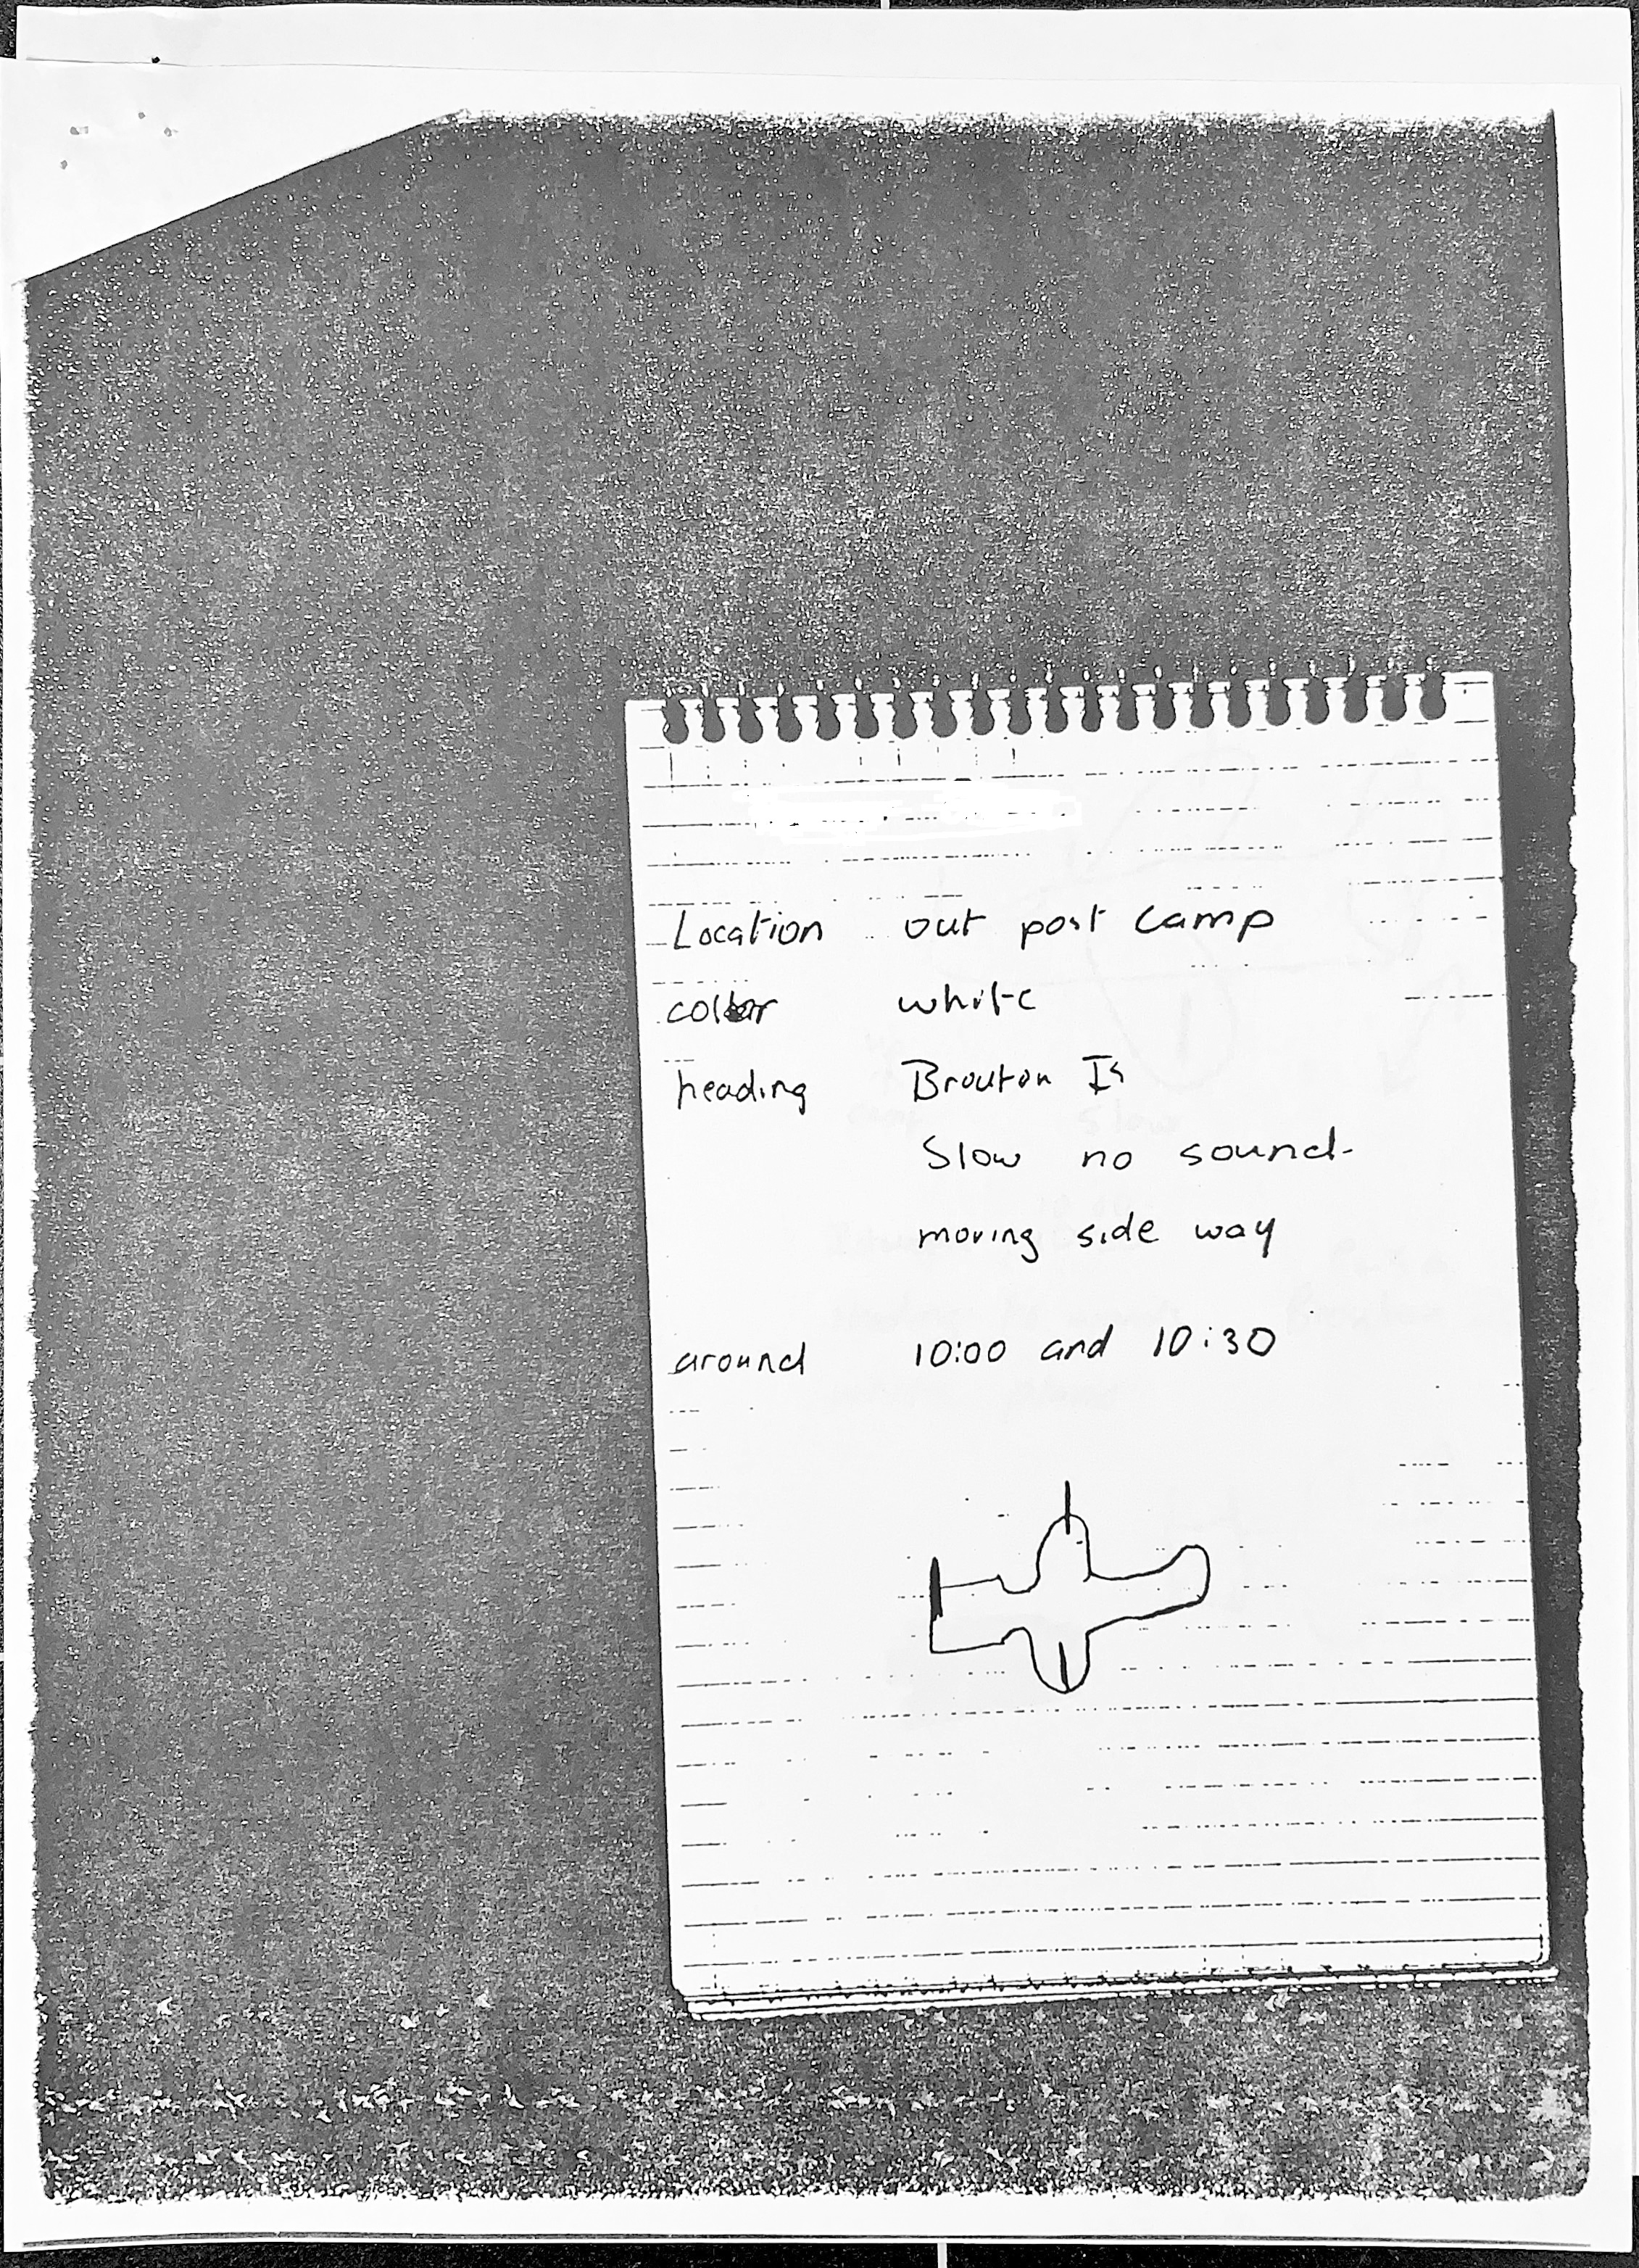 Location out post camp
color white
heading Brouton Is
Slow no sound-
moving side way
around 10:00 and 10:30